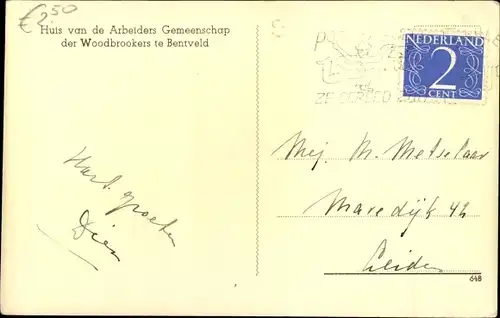 €2.50
Huis van de Arbeiders Gemeenschap
der Woodbrookers te Bentveld
NEDERLAND
2
CENT
Hart. groeten
Dien
Mej. M. Metselaar
Maredijk 42
Leiden
648